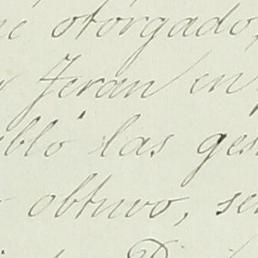 otorgado,
Jeran en
las ges
obtuvo, se